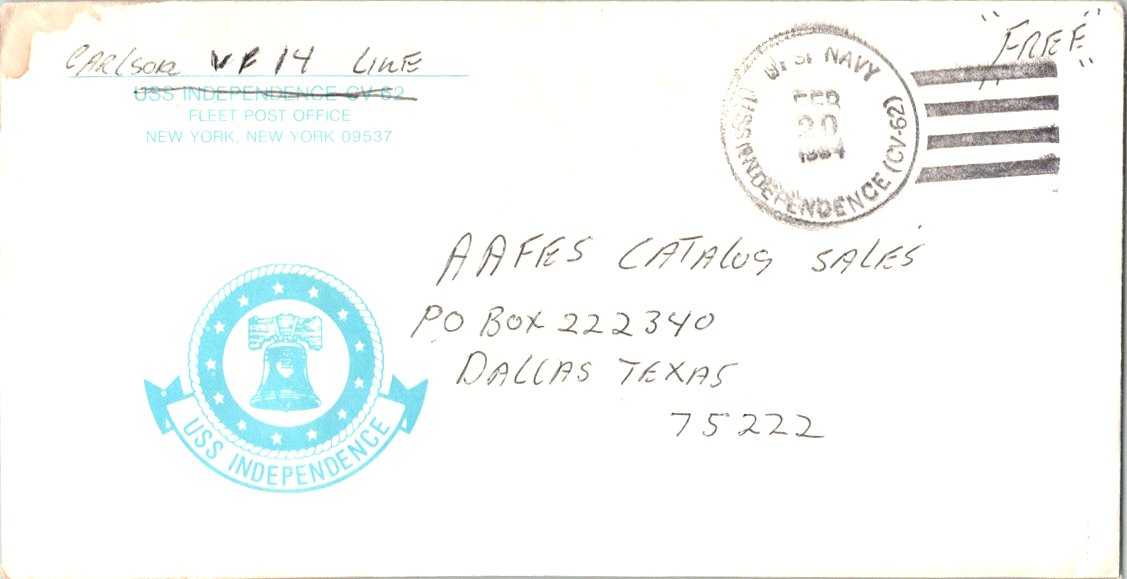 Carlson VF 14 LINE
USS INDEPENDENCE CV-62
FLEET POST OFFICE
NEW YORK, NEW YORK 09537
"FREE"
NAVY
FEB
20
1984
USS INDEPENDENCE (CV-62)
AAFES CATALOG SALES
PO BOX 222340
DALLAS TEXAS
75222
USS INDEPENDENCE